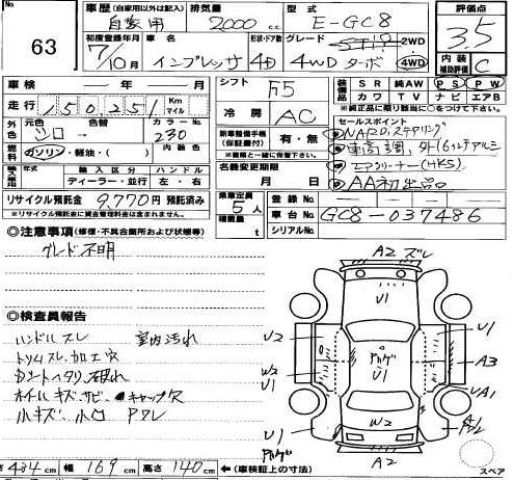 No. 63
車歴 (自家用以外は記入) 自家用
排気量 2000 cc
型式 E-GC8
評価点 3.5
初度登録年月 7/10月
車名 インプレッサ
形状・ドア数 4D
グレード 4WD ターボ
2WD 4WD
内装補助評価 C
車検 ― 年 ― 月
シフト F5
装備品 SR 純AW PS PW
カワ TV ナビ エアB
※純正品に限り該当に○をつけて下さい。
走行 150,251 Km マイル
冷房 AC
セールスポイント
NARDIステアリング
車高調、外16インチアルミ
エアクリーナー(HKS)
AA初出品
外色 元色 シロ 色替 カラーNo. 230
燃料 ガソリン・軽油・( )
新車整備手帳(保証書付) 有・無
輸入区分 ハンドル
年式 ディーラー・並行 左・右
名義変更期限 月 日
リサイクル預託金 9,770円 預託済み
※リサイクル預託金に資金管理料金は含まれません。
乗車定員 5人
積載量 t
登録No.
車台No. GC8-037486
シリアルNo.
◎注意事項(修復・不具合個所および状態等)
グレード不明
◎検査員報告
ハンドルスレ 室内汚れ
トリムスレ、加工穴
Dシートヘタリ、破れ
ホイルキズ、サビ・キャップ欠
小キズ、小凹 Pヌレ
A2 ズレ
U1
U2 U1
W2 U1
アトゲ U1
A3
UA1
W2
U1
A2
スペア
434 cm 幅 169 cm 高さ 140 cm ←(車検証上の寸法)